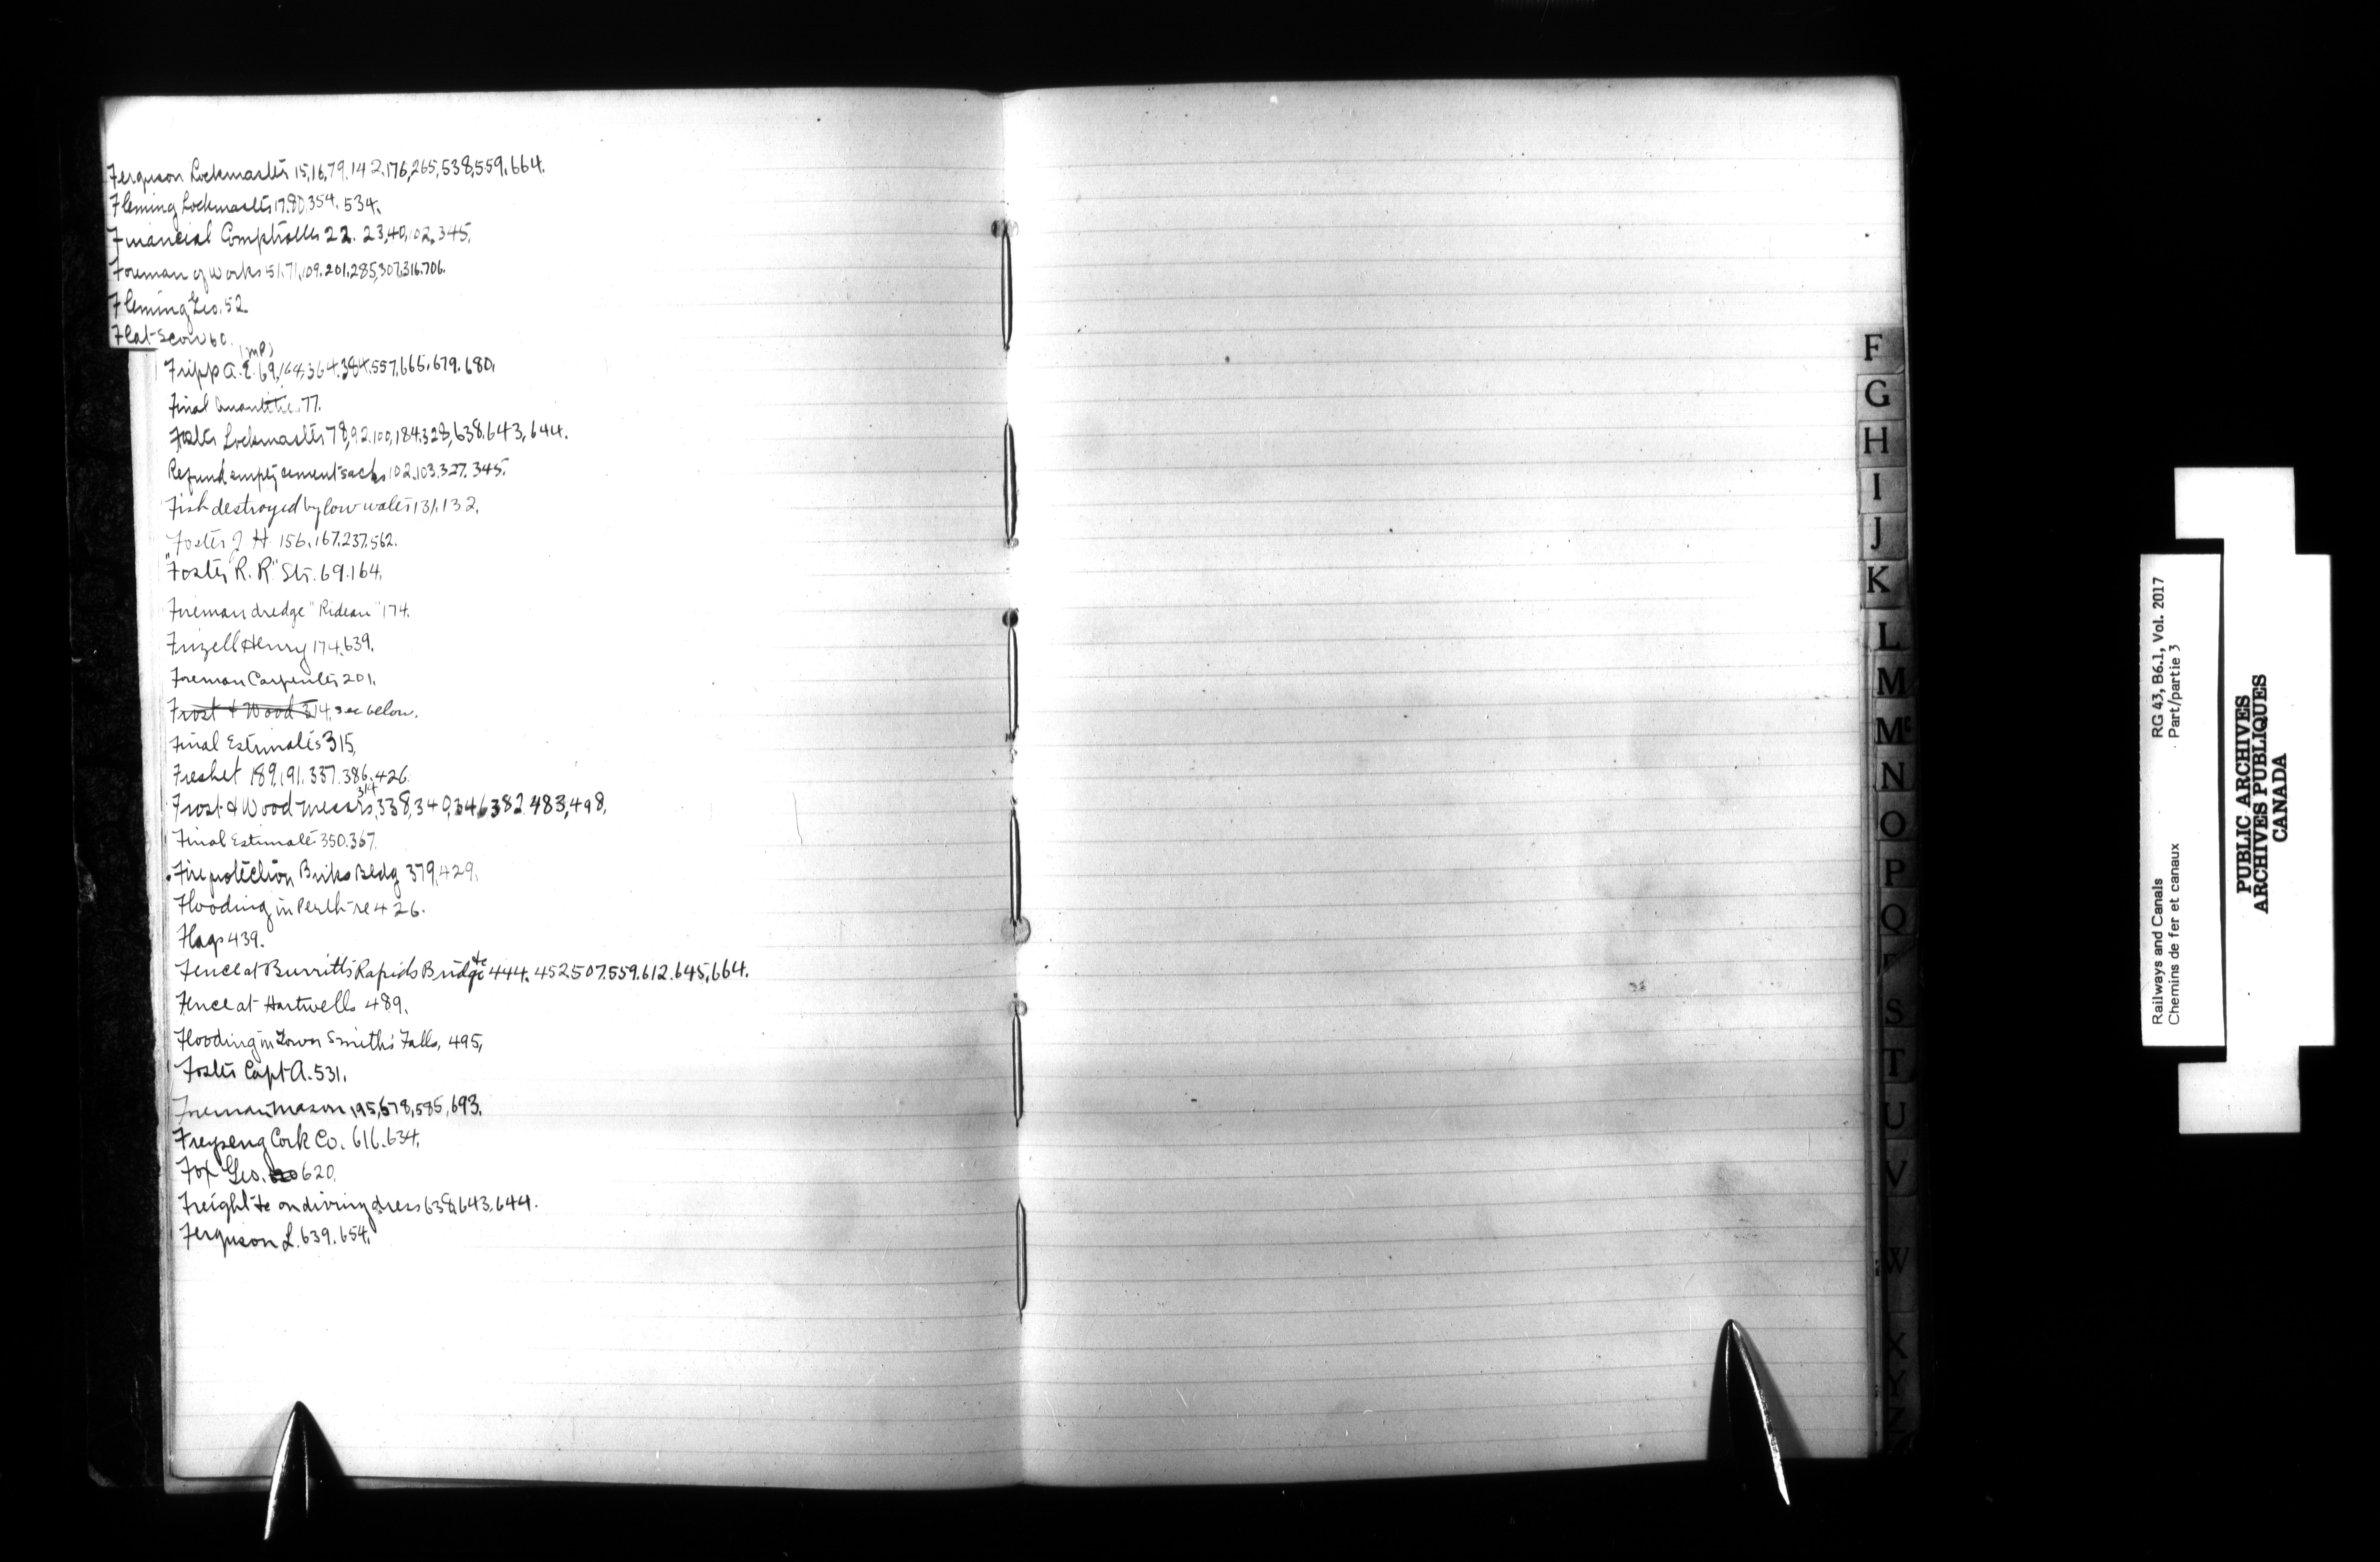 Ferguson Lockmaster 15,16,79.142.176,265,538,559.664.
Fleming Lockmaster 17.80.354.534.
Financial Comptroller 22. 23,40,102.345.
Foreman of Works 51.71,109.201.285,307.316.706.
Fleming Geo. 52
Flat Scow 60.
(MP)
Fripp A.E. 69,164,364.384.557,665,679.680.
Final Quantities 77.
Foster Lockmaster 78,92.100,184.328,638.643,644.
Refund empty cement sacks 102.103.327.345.
Fish destroyed by low water 131.132.
Foster J H. 156.167.237.562.
"Foster R. R" Str. 69.164.
Fireman dredge "Rideau" 174.
Frizell Henry 174.639.
Foreman Carpenter 201.
Frost & Wood 314. see below.
Final Estimates 315,
Freshet 189,191.337.386.426
Frost & Wood Messrs, 314 338,340,346,382.483,498.
Final Estimate 350.367.
Fire protection Birks Bldg 379.429.
Flooding in Perth re 426.
Flags 439.
Fence at Burritts Rapids Bridge &c 444. 452.507.559.612.645.664.
Fence at Hartwells 489.
Flooding in Town Smith's Falls, 495,
Foster Capt A. 531.
Foreman Mason 195,578,585,693.
Freyseng Cork Co. 616.634.
Fox Geo. 620.
Freight &c on diving dress 638,643,644.
Ferguson L. 639.654.
F
G
H
I
J
K
L
M
Mc
N
O
P
Q
S
T
U
V
W
X
Y
Z
Railways and Canals RG 43, B6.1, Vol. 2017
Chemins de fer et canaux Part/partie 3
PUBLIC ARCHIVES
ARCHIVES PUBLIQUES
CANADA